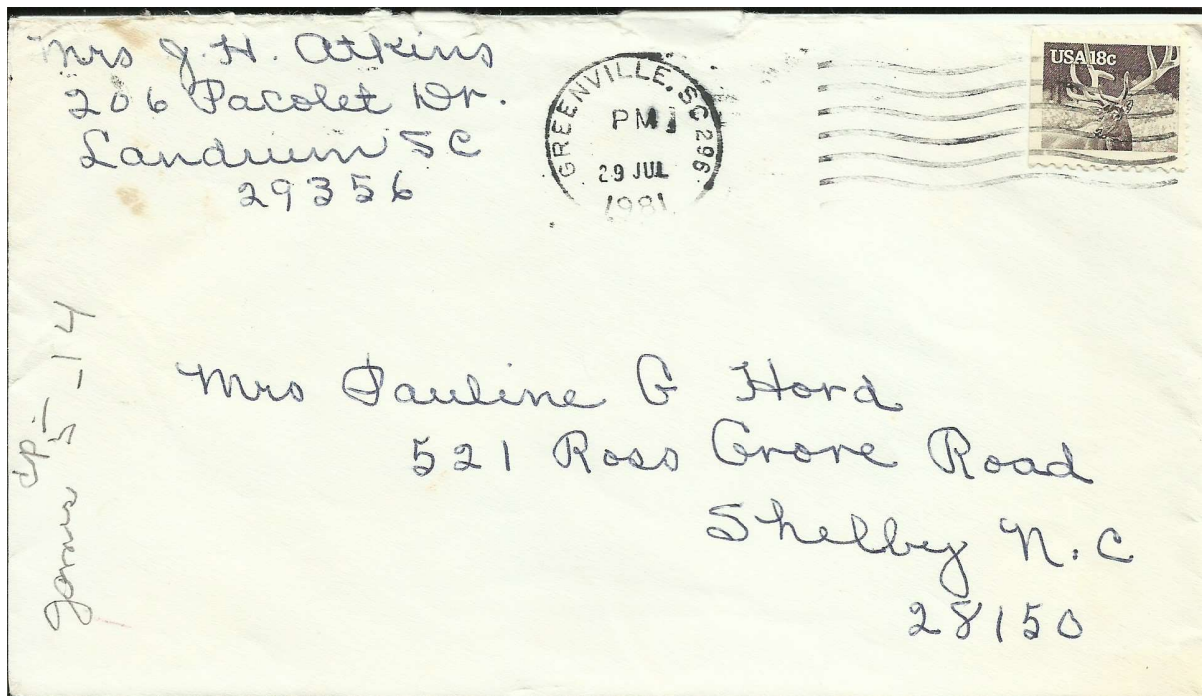 Mrs J. H. Atkins
206 Pacolet Dr.
Landrum SC
29356
GREENVILLE, SC 296
PM
29 JUL
1981
USA 18c
Mrs Pauline G Hord
521 Ross Grove Road
Shelby N. C
28150
5-14